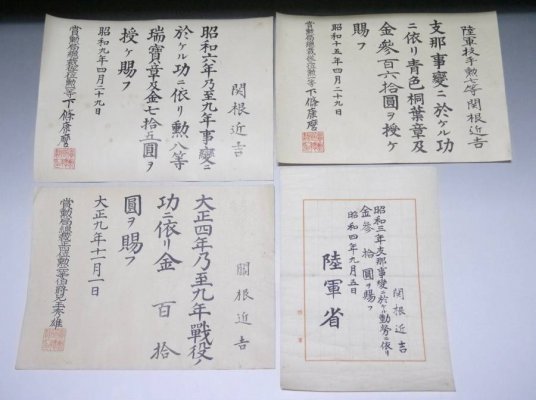 陸軍技手勲七等關根近吉
支那事變ニ於ケル功
ニ依リ青色桐葉章及
金參百六拾圓ヲ授ケ
賜フ
昭和十五年四月二十九日
賞勲局總裁 下條康麿
関根近吉
昭和六年乃至九年事變ニ
於ケル功ニ依リ勲八等
瑞寶章及金七拾五圓ヲ
授ケ賜フ
昭和九年四月二十九日
賞勲局總裁 下條康麿
関根近吉
昭和三年支那事變ニ於ケル勤勞ニ依リ
金參拾圓ヲ賜フ
昭和四年九月五日
陸軍省
關根近吉
大正四年乃至九年戰役ノ
功ニ依リ金百拾
圓ヲ賜フ
大正九年十一月一日
賞勲局總裁 伯爵兒玉秀雄